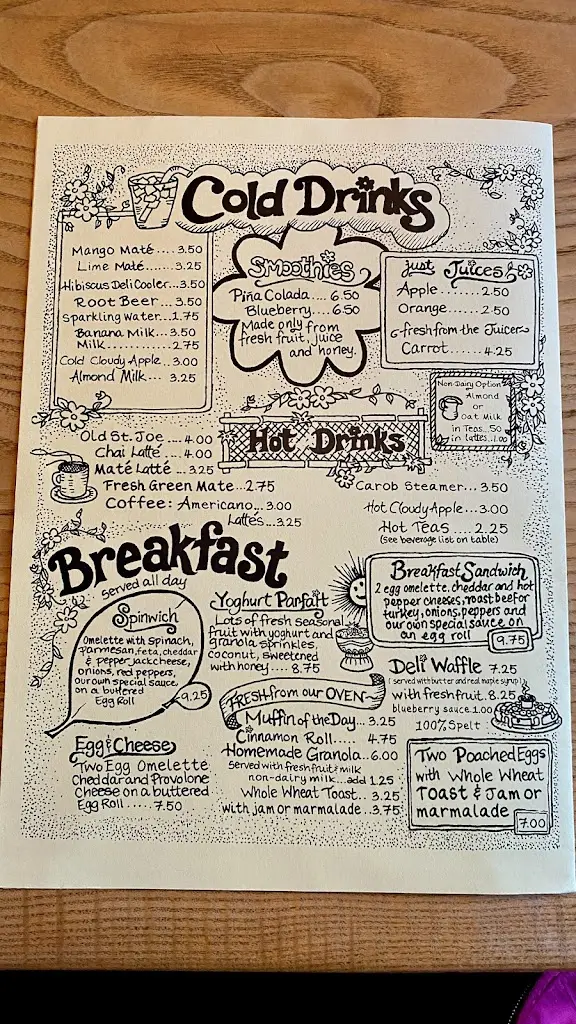 Cold Drinks
Mango Maté.....3.50
Lime Maté......3.25
Hibiscus Deli Cooler...3.50
Root Beer....3.50
Sparkling Water...1.75
Banana Milk...3.50
Milk............2.75
Cold Cloudy Apple..3.00
Almond Milk... 3.25
Smoothies
Piña Colada.... 6.50
Blueberry.....6.50
Made only from
fresh fruit, juice
and honey.
just Juices
Apple........2.50
Orange......2.50
fresh from the Juicer
Carrot......4.25
Non-Dairy Option
Almond
or
Oat Milk
in Teas...50
in lattes..1.00
Hot Drinks
Old St. Joe.... 4.00
Chai Latté.... 4.00
Maté Latté... 3.25
Fresh Green Mate...2.75
Coffee: Americano...3.00
Lattes...3.25
Carob Steamer...3.50
Hot Cloudy Apple...3.00
Hot Teas .... 2.25
(see beverage list on table)
Breakfast
served all day
Spinwich
Omelette with spinach,
parmesan, feta, cheddar
& pepper jack cheese,
onions, red peppers,
our own special sauce
on a buttered
Egg Roll
9.25
Egg & Cheese
Two Egg Omelette
Cheddar and Provolone
Cheese on a buttered
Egg Roll ..... 7.50
Yoghurt Parfait
Lots of fresh seasonal
fruit with yoghurt and
granola sprinkles,
coconut, sweetened
with honey.... 8.75
FRESH from our OVEN
Muffin of the Day... 3.25
Cinnamon Roll.... 4.75
Homemade Granola...6.00
Served with fresh fruit & milk
non-dairy milk...add 1.25
Whole Wheat Toast... 3.25
with jam or marmalade...3.75
Breakfast Sandwich
2 egg omelette, cheddar and hot
pepper cheeses, roast beef or
turkey, onions, peppers and
our own special sauce on
an egg roll
9.75
Deli Waffle 7.25
(served with butter and real maple syrup)
with fresh fruit. 8.25
blueberry sauce 1.00
100% Spelt
Two Poached Eggs
with Whole Wheat
Toast & Jam or
marmalade
7.00